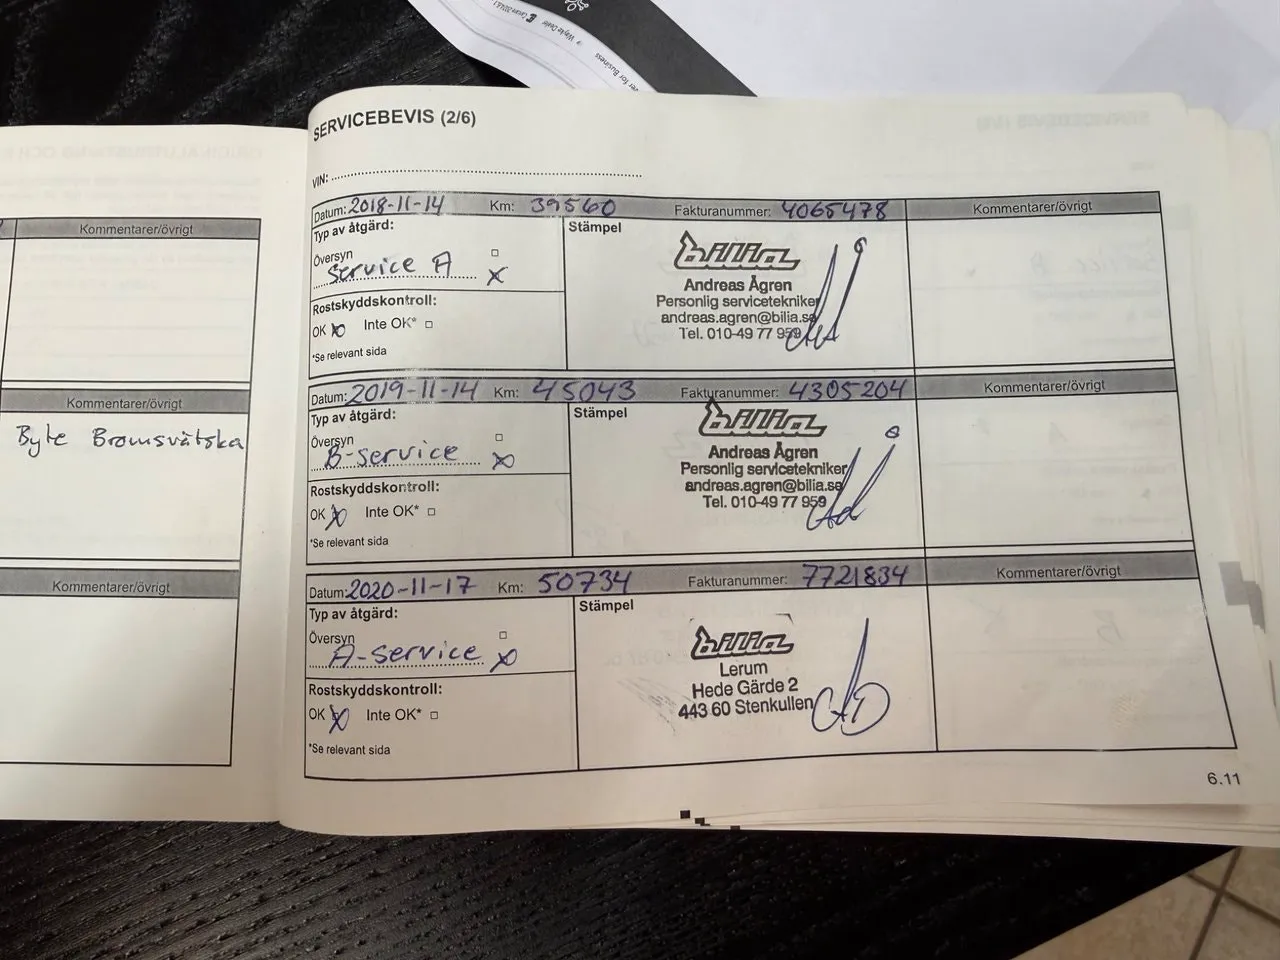 Kommentarer/övrigt
Kommentarer/övrigt
Byte Bromsvätska
Kommentarer/övrigt
SERVICEBEVIS (2/6)
VIN:
Datum: 2018-11-14 Km: 39560 Fakturanummer: 4065478 Kommentarer/övrigt
Typ av åtgärd: Stämpel
Översyn
Service A
Rostskyddskontroll:
OK Inte OK*
*Se relevant sida
bilia
Andreas Ågren
Personlig servicetekniker
andreas.agren@bilia.se
Tel. 010-49 77 959
Datum: 2019-11-14 Km: 45043 Fakturanummer: 4305204 Kommentarer/övrigt
Typ av åtgärd: Stämpel
Översyn
B-service
Rostskyddskontroll:
OK Inte OK*
*Se relevant sida
bilia
Andreas Ågren
Personlig servicetekniker
andreas.agren@bilia.se
Tel. 010-49 77 959
Datum: 2020-11-17 Km: 50734 Fakturanummer: 7721834 Kommentarer/övrigt
Typ av åtgärd: Stämpel
Översyn
A-service
Rostskyddskontroll:
OK Inte OK*
*Se relevant sida
bilia
Lerum
Hede Gärde 2
443 60 Stenkullen
6.11